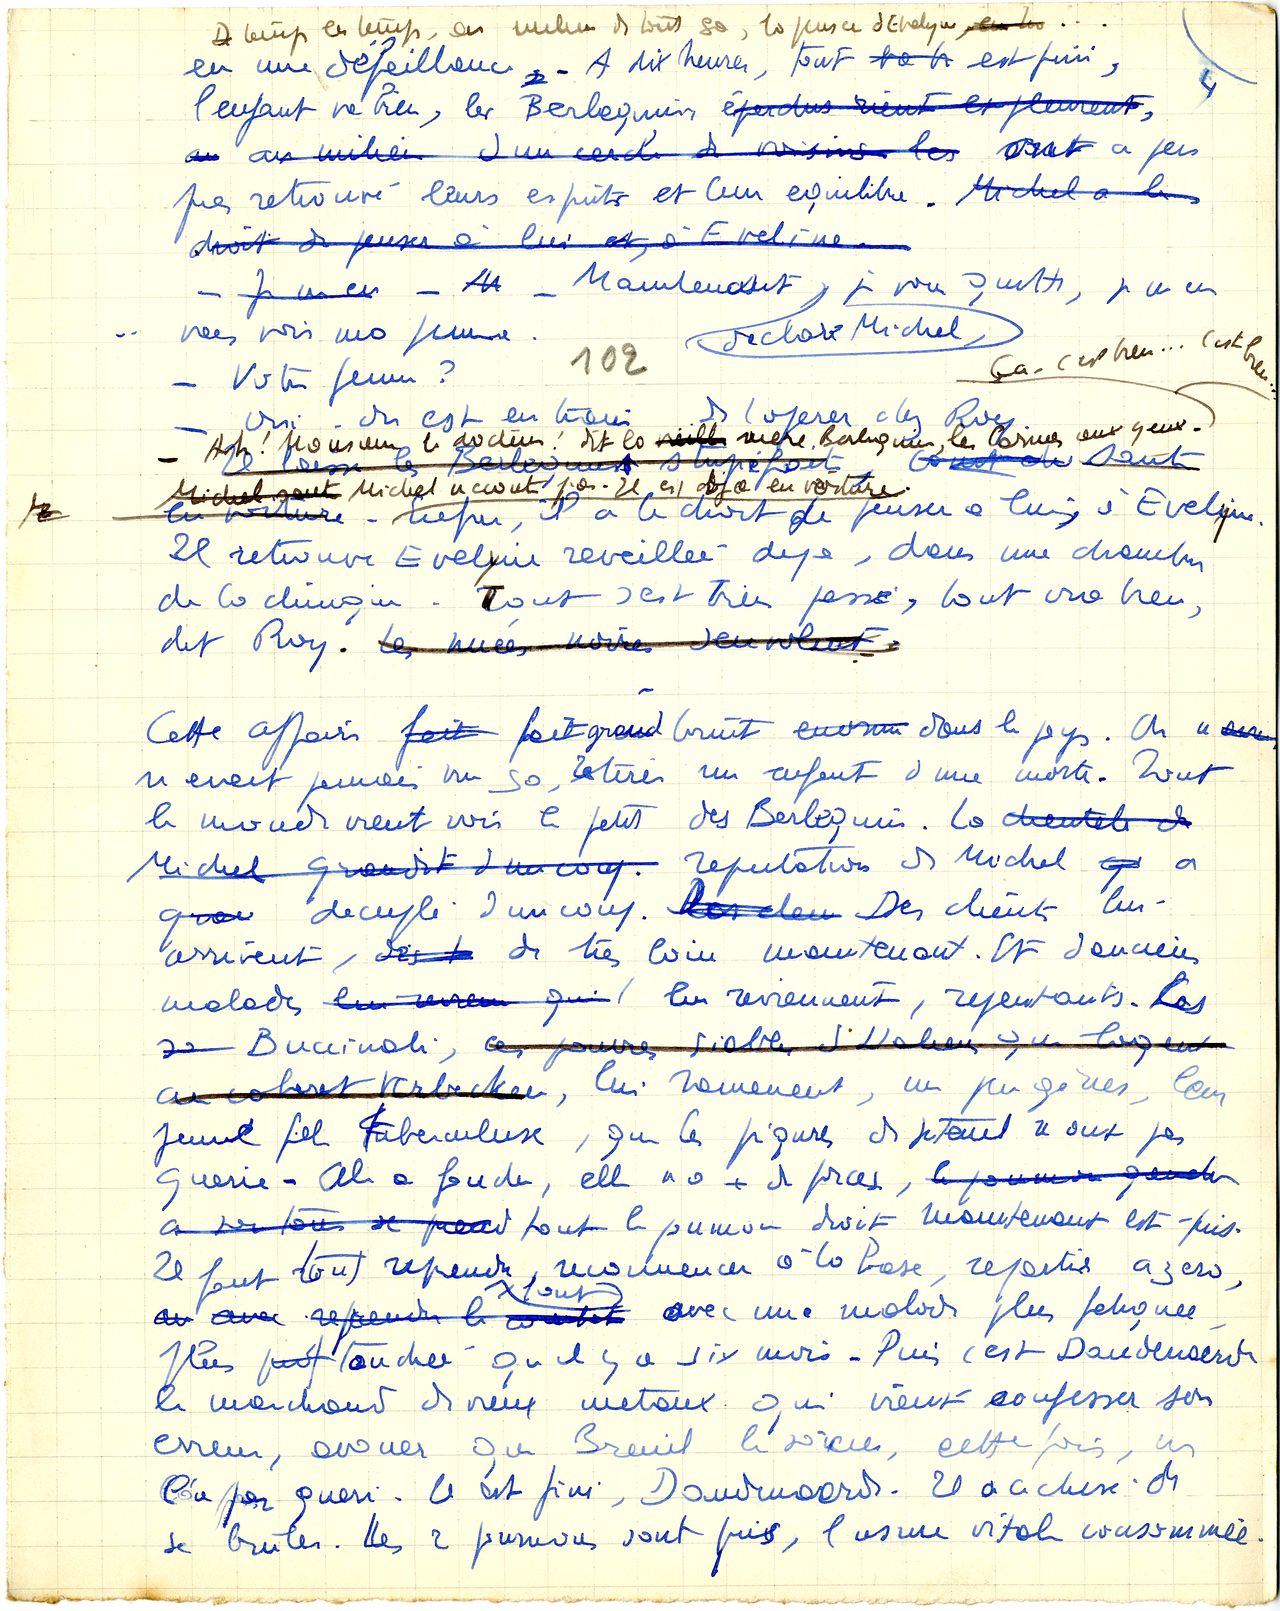 De temps en temps, au milieu de tout ça, la pensée d'Evelyne, ...
4
en une défaillance. - A dix heures, tout est fini,
l'enfant va bien, les Berlequin éperdus rient et pleurent,
au milieu d'un cercle de voisins les ont a peu
pres retrouvé leurs esprits et leur equilibre. Michel a le
droit de penser à lui et, à Eveline.
- Je m'en - - Maintenant, je vous quitte, je m'en
vais voir ma femme. déclare Michel
102
Ça. c'est bien... c'est bien...
- Votre femme ?
- Oui. on est en train de l'opérer chez Roy.
- Ah ! Monsieur le docteur ! dit la vieille mère Berlequin, les larmes aux yeux.
Il laisse les Berlequin stupéfaits, saute
Michel saute Michel n'ecoute pas. Il est déja en voiture.
en voiture - Enfin, il a le droit de penser a lui, à Evelyne.
Il retrouve Evelyne reveillée deja, dans une chambre
de la clinique. Tout s'est bien passé, tout va bien,
dit Roy. Les nuées noires s'envolent.
Cette affaire fait fait grand bruit enorme dans le pays. On n'
n'avait jamais vu ça, retirer un enfant d'une morte. Tout
le monde vient voir le petit des Berlequin. La clientele de
Michel grandit d'un coup. reputation de Michel a
decuplé d'un coup. Des clients lui
arrivent, de très loin maintenant. Et d'anciens
malades qui lui reviennent, repentants. Les
Buccinali, ces pauvres diables d'Italiens qui logent
au cabaret Verbecken, lui ramenent, un peu gênés, leur
jeune fille tuberculeuse, que les piqures de n'ont pas
guerie - Ali a fondu, elle n'a + de forces, le poumon gauche
a tout le poumon droit maintenant est pris.
Il faut tout reprendre, recommencer à la base, repartir a zero,
avec reprendre le combat tout avec une malade plus fatiguée
plus touchée qu'il y a six mois - Puis c'est Dandenaerde
le marchand de vieux metaux qui vient confesser son
erreur, avouer que Breuil le sorcier, cette fois, ne
l'a pas gueri. Il est fini, Dandenaerde. Il a achevé de
se bruler. Les 2 poumons sont pris, l'usine vitale consommée.